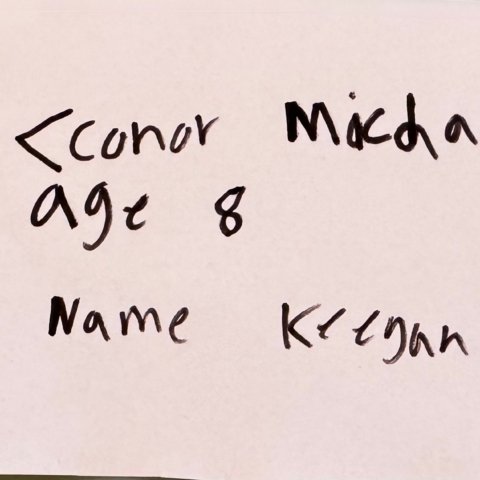 <conor
age 8
Name Keegan